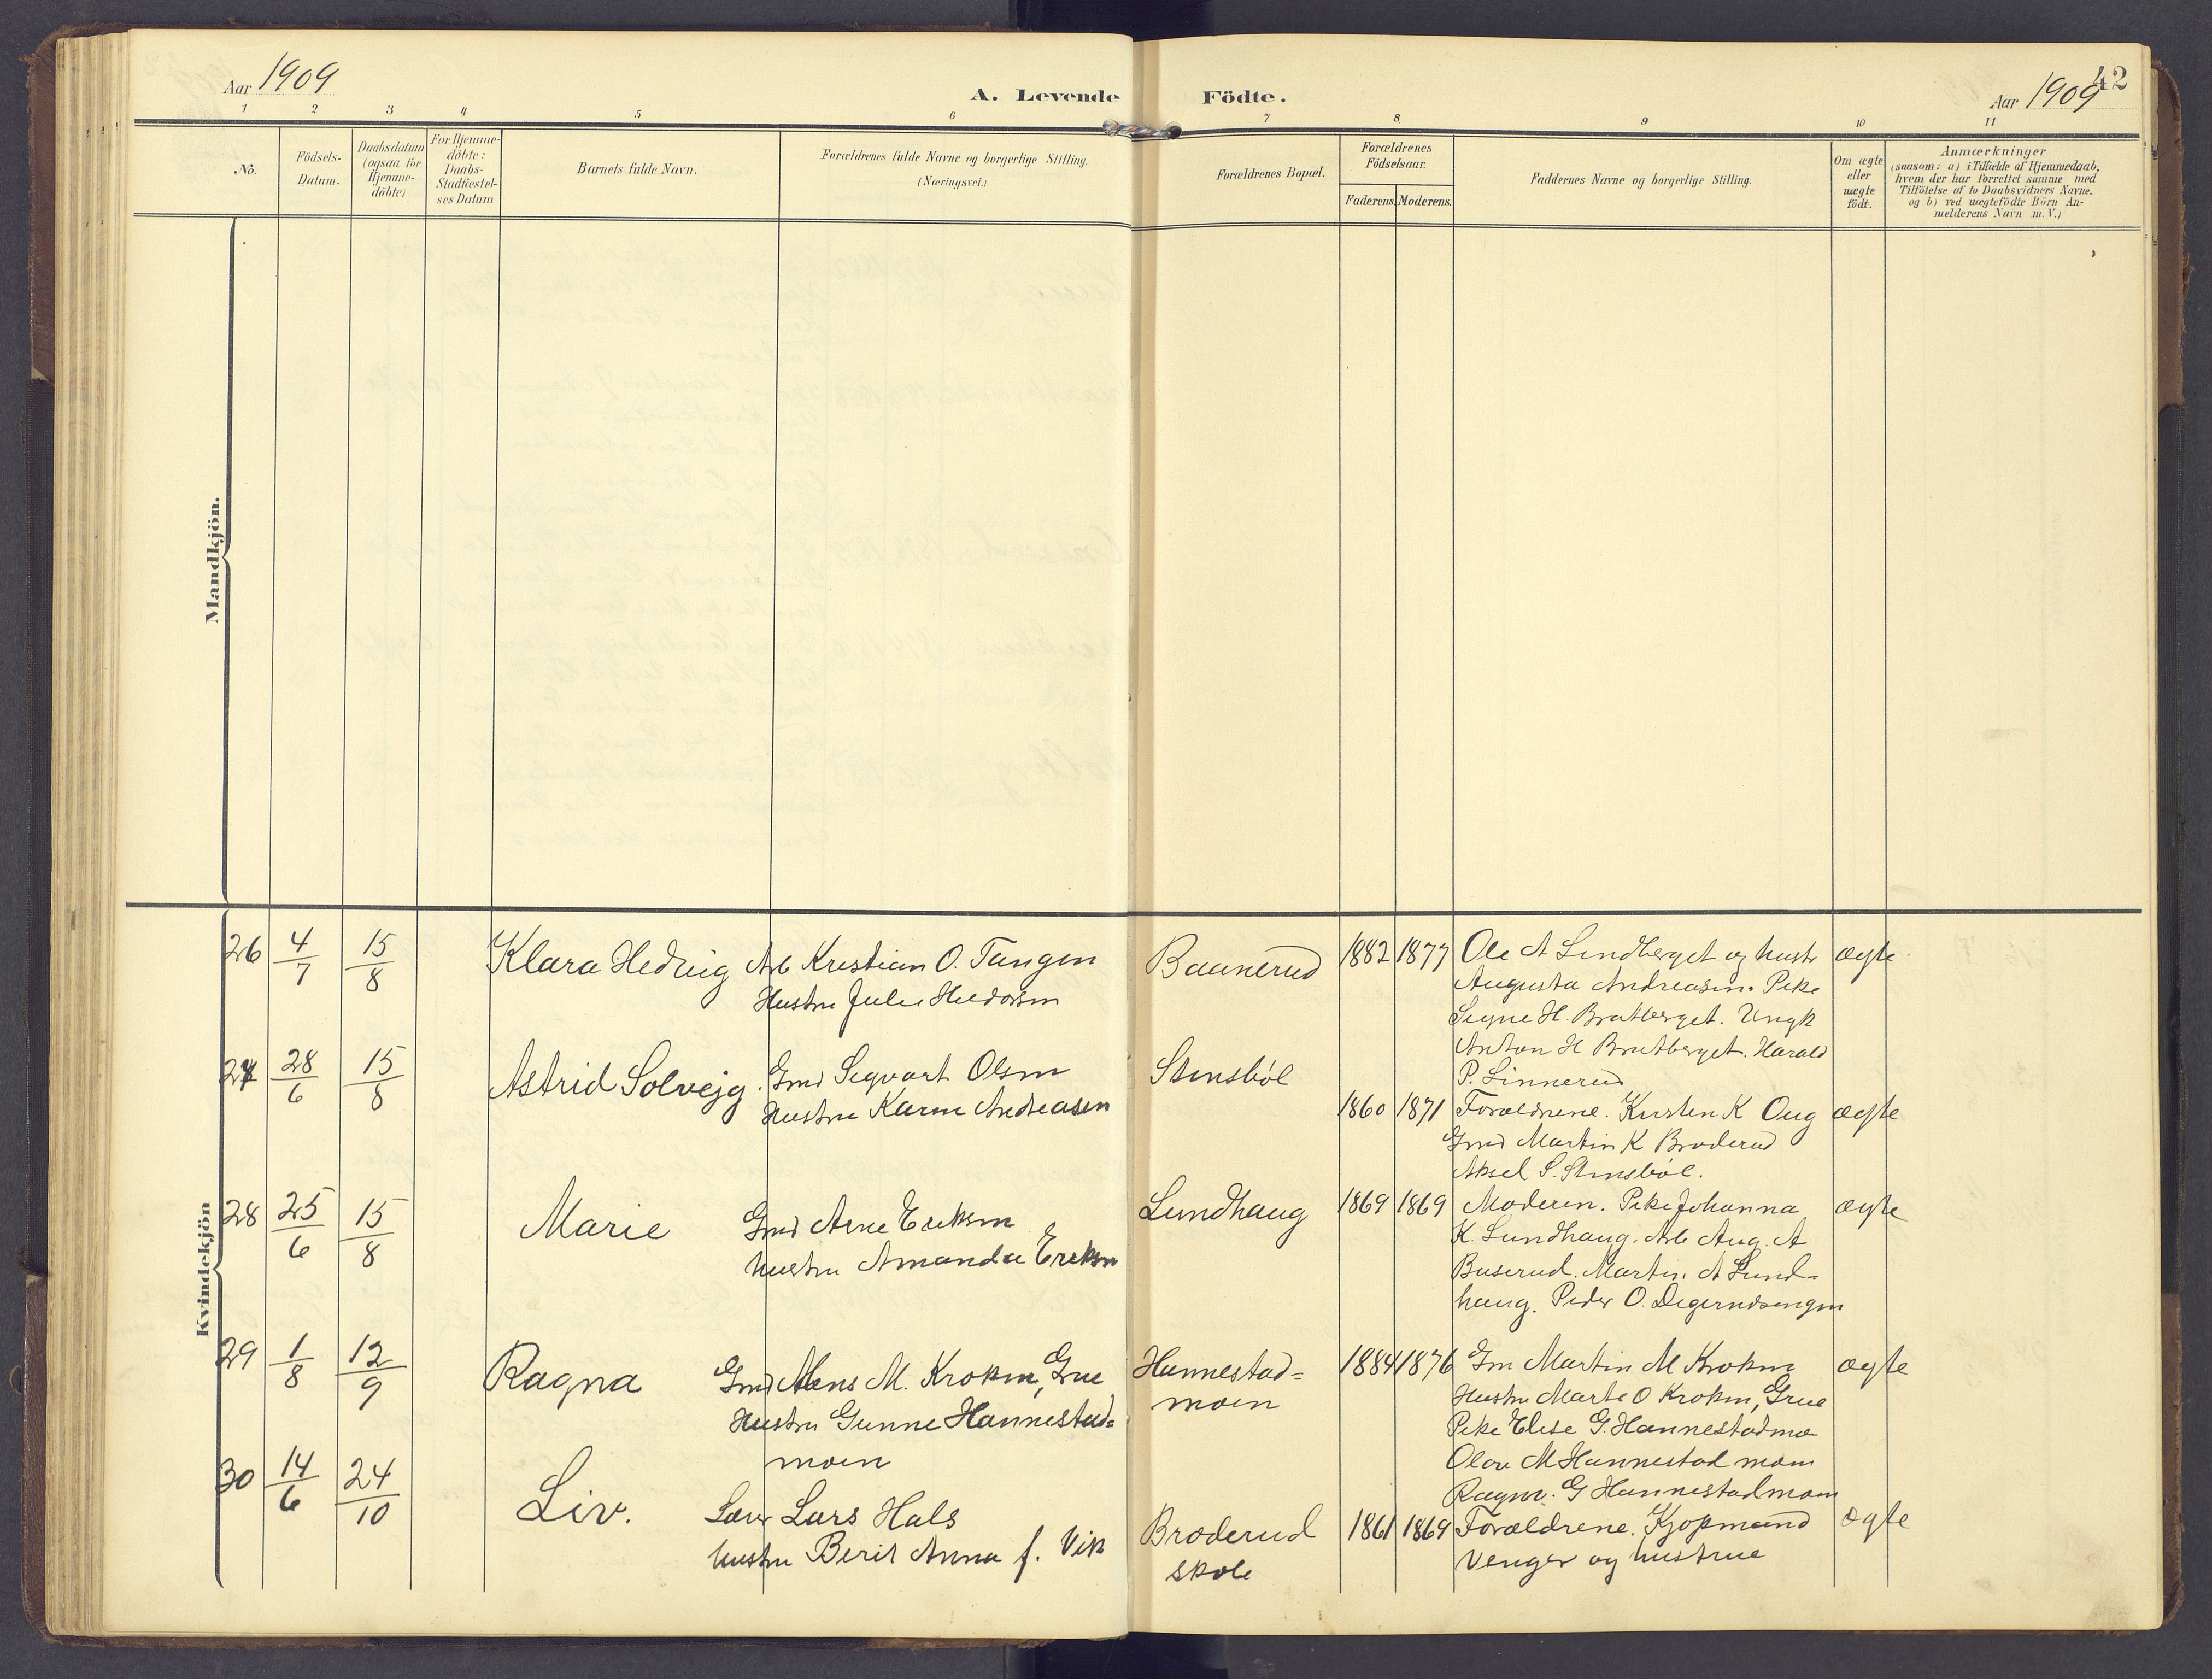 Aar 1909
A. Levende Födte.
Aar 1909
42
1 2 3 4 5 6 7 8 9 10 11
No.
Födsels-
Datum.
Daabsdatum
(ogsaa for
Hjemme-
döbte)
For Hjemme-
döbte:
Daabs-
Stadfæstel-
ses Datum
Barnets fulde Navn.
Forældrenes fulde Navne og borgerlige Stilling.
(Næringsvei.)
Forældrenes Bopæl.
Forældrenes
Födselsaar.
Faderens. Moderens.
Faddernes Navne og borgerlige Stilling.
Om ægte
eller
uægte
födt.
Anmærkninger
(saasom: a) i Tilfælde af Hjemmedaab,
hvem der har forrettet samme med
Tilföielse af to Daabsvidners Navne,
og b) ved uægtefödte Börn An-
melderens Navn m. V.)
Mandkjön.
Kvindekjön
26 4/7 15/8 Klara Hedvig
Arb Kristian O. Tangen
Hustru Julie
Baanerud
1882 1877
Ole A Lindberget og hustr
Augusta Andreasen. Pike
Signe H. Bratberget. Ungk
Anton H Bratberget. Harald
P. Linnerud
ægte
27 28/6 15/8 Astrid Solvejg.
Gmd Sigvart Olsen
Hustru Karen Andreasen
Stensböl
1860 1871
Forældrene. Kirsten K Oug
Gmd Martin K Broderud
Aksel S. Stensböl.
ægte
28 25/6 15/8 Marie
Gmd Arne Eriksen
hustru Amanda Eriksen
Lundhaug
1869 1869
Moderen. Pike Johanna
K. Lundhaug. Arb Aug. A
Buserud. Martin A Lund-
haug. Peder O. Degerudsengen
ægte
29 1/8 12/9 Ragna
Gmd M. Kroken, Grue
Hustru Gunne Hannestad=
moen
Hannestad=
moen
1884 1876
Gm Martin M Kroken
Hustru Marte O Kroken, Grue
Pike Elise G. Hannestadmo
Olav M Hannestad moen
Ragnv. G Hannestadmoen
ægte
30 14/6 24/10 Liv.
Lærer Lars Hals
hustru Berit Anna f. Vik
Broderud
skole
1861 1869
Forældrene. Kjopmand
Venger og hustrue
ægte